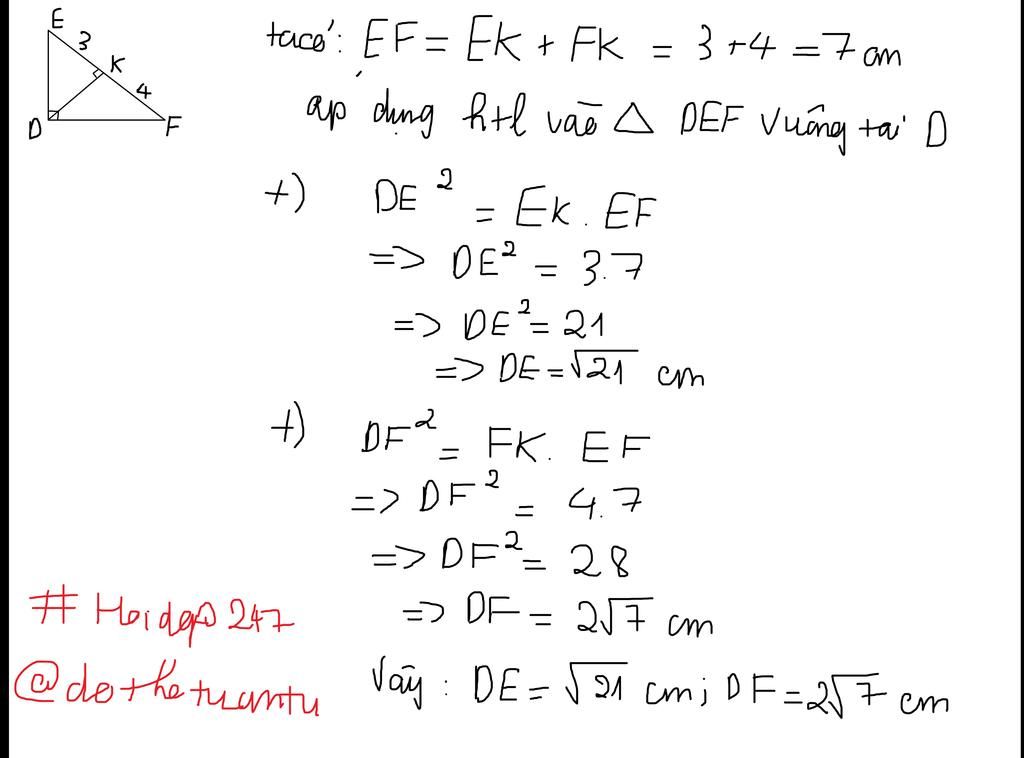 E
3
K
4
D
F
ta có: EF = EK + FK = 3 + 4 = 7 cm
áp dụng htl vào △ DEF vuông tại D
+) DE² = EK . EF
=> DE² = 3.7
=> DE² = 21
=> DE = √21 cm
+) DF² = FK. EF
=> DF² = 4.7
=> DF² = 28
=> DF = 2√7 cm
Vậy : DE = √21 cm; DF = 2√7 cm
# Hoidap247
@dothetuantu